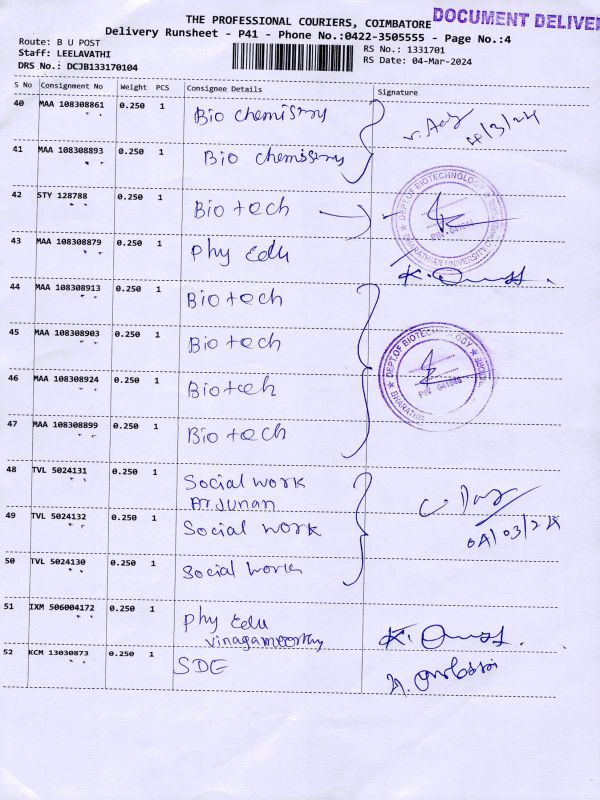 THE PROFESSIONAL COURIERS, COIMBATORE
DOCUMENT DELIVER
Delivery Runsheet - P41 - Phone No.:0422-3505555 - Page No.:4
Route: B U POST
Staff: LEELAVATHI
DRS No.: DCJB133170104
RS No.: 1331701
RS Date: 04-Mar-2024
S No Consignment No Weight PCS Consignee Details Signature
40 MAA 108308861 0.250 1 Bio chemistry
4/3/24
41 MAA 108308893 0.250 1 Bio chemistry
42 STY 128788 0.250 1 Bio tech
DEPT. OF BIOTECHNOLOGY
BHARATHIAR UNIVERSITY
43 MAA 108308879 0.250 1 Phy Edu
44 MAA 108308913 0.250 1 Bio tech
45 MAA 108308903 0.250 1 Bio tech
DEPT. OF BIOTECHNOLOGY
PIN 641046
46 MAA 108308924 0.250 1 Bio tech
47 MAA 108308899 0.250 1 Bio tech
48 TVL 5024131 0.250 1 Social work
Arjunan
49 TVL 5024132 0.250 1 Social work
04/03/24
50 TVL 5024130 0.250 1 Social work
51 IXM 506004172 0.250 1 Phy Edu
vinagamoorthy
52 KCM 13030873 0.250 1 SDE